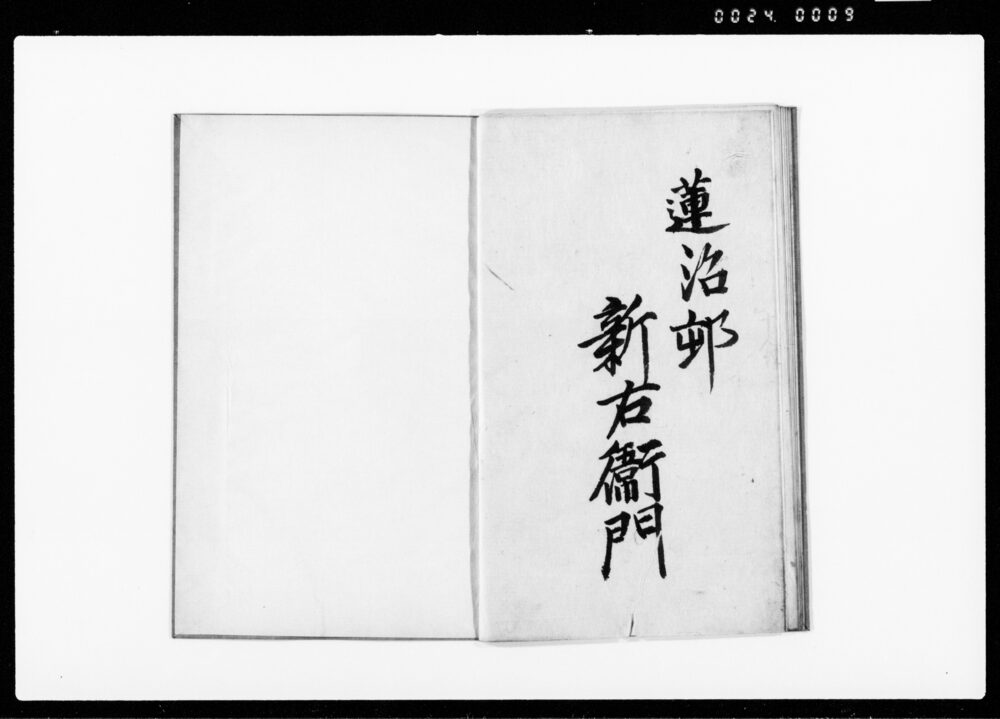 0024.0009
蓮沼邨
新右衞門